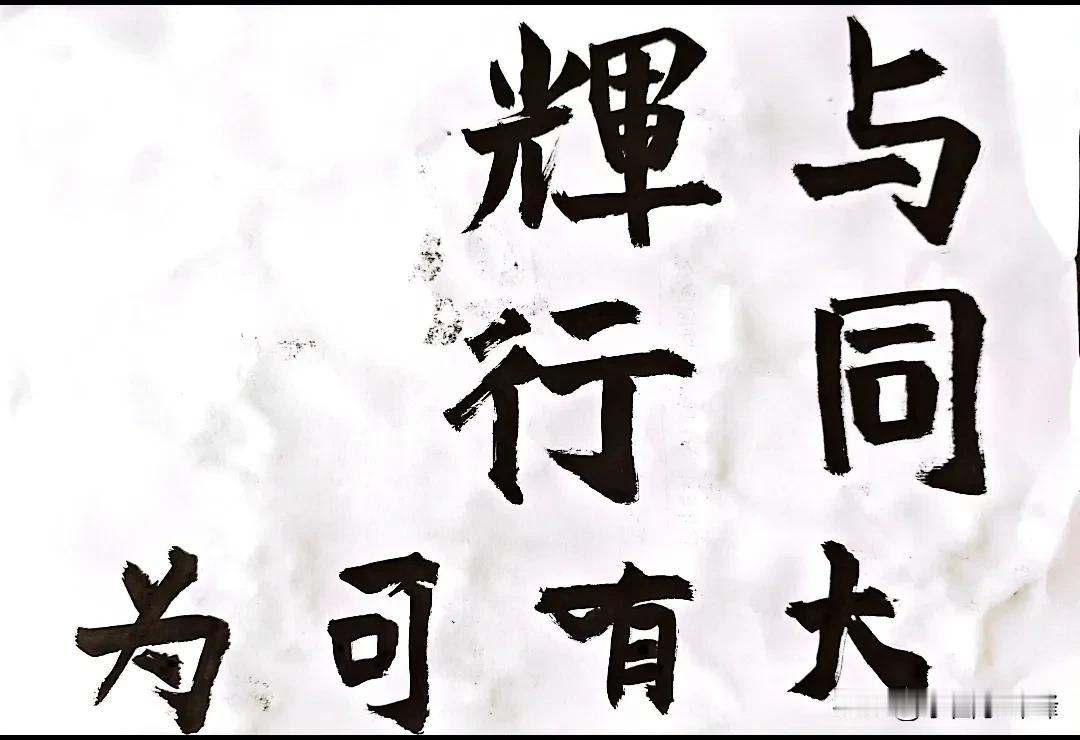 与輝
同行
大有可为